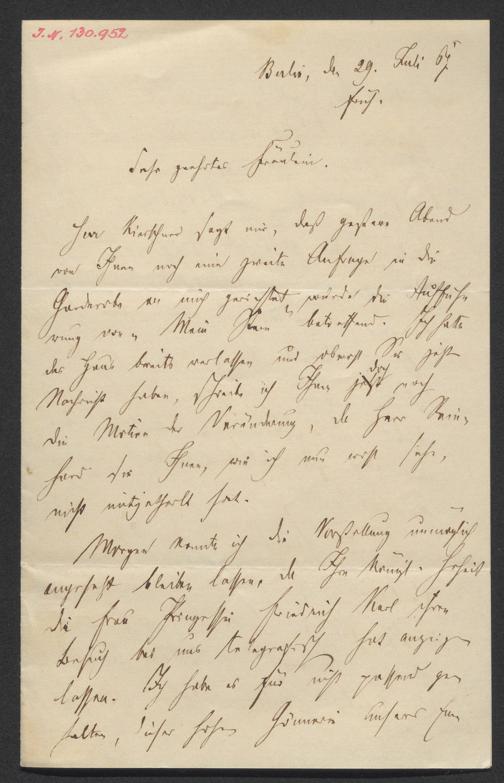 J.N. 130.952
Berlin, den 29. Juli 67
früh.
Sehr geehrtes Fräulein.
Herr Kierschner sagt mir, daß gestern Abend
von Ihnen noch eine zweite Anfrage in die
Garderobe an mich gerichtet wurde die Auffüh-
rung von „Mein betreffend. Ich hatte
das Haus bereits verlassen und obwohl Sie jetzt
Nachricht haben, schreibe ich Ihnen doch noch
die Motive der Veränderung, da Herr Rein-
hard sie Ihnen, wie ich nun erst sehe,
nicht mitgetheilt hat.
Morgen konnte ich die Vorstellung unmöglich
angesetzt bleiben lassen, da Ihre Königl. Hoheit
die Frau Prinzessin Friedrich Karl Ihren
Besuch bei uns telegraphisch hat anzeigen
lassen. Ich habe es für nicht passend ge-
halten, dieser hohen Gönnerin unseres